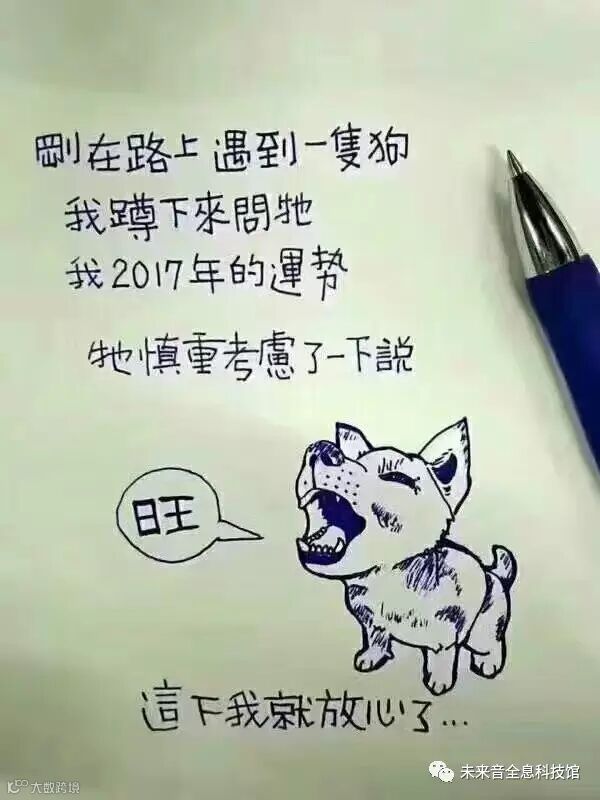 剛在路上遇到一隻狗
我蹲下來問牠
我2017年的運勢
牠慎重考慮了一下說
旺
這下我就放心了...
大数跨境
未来音全息科技馆